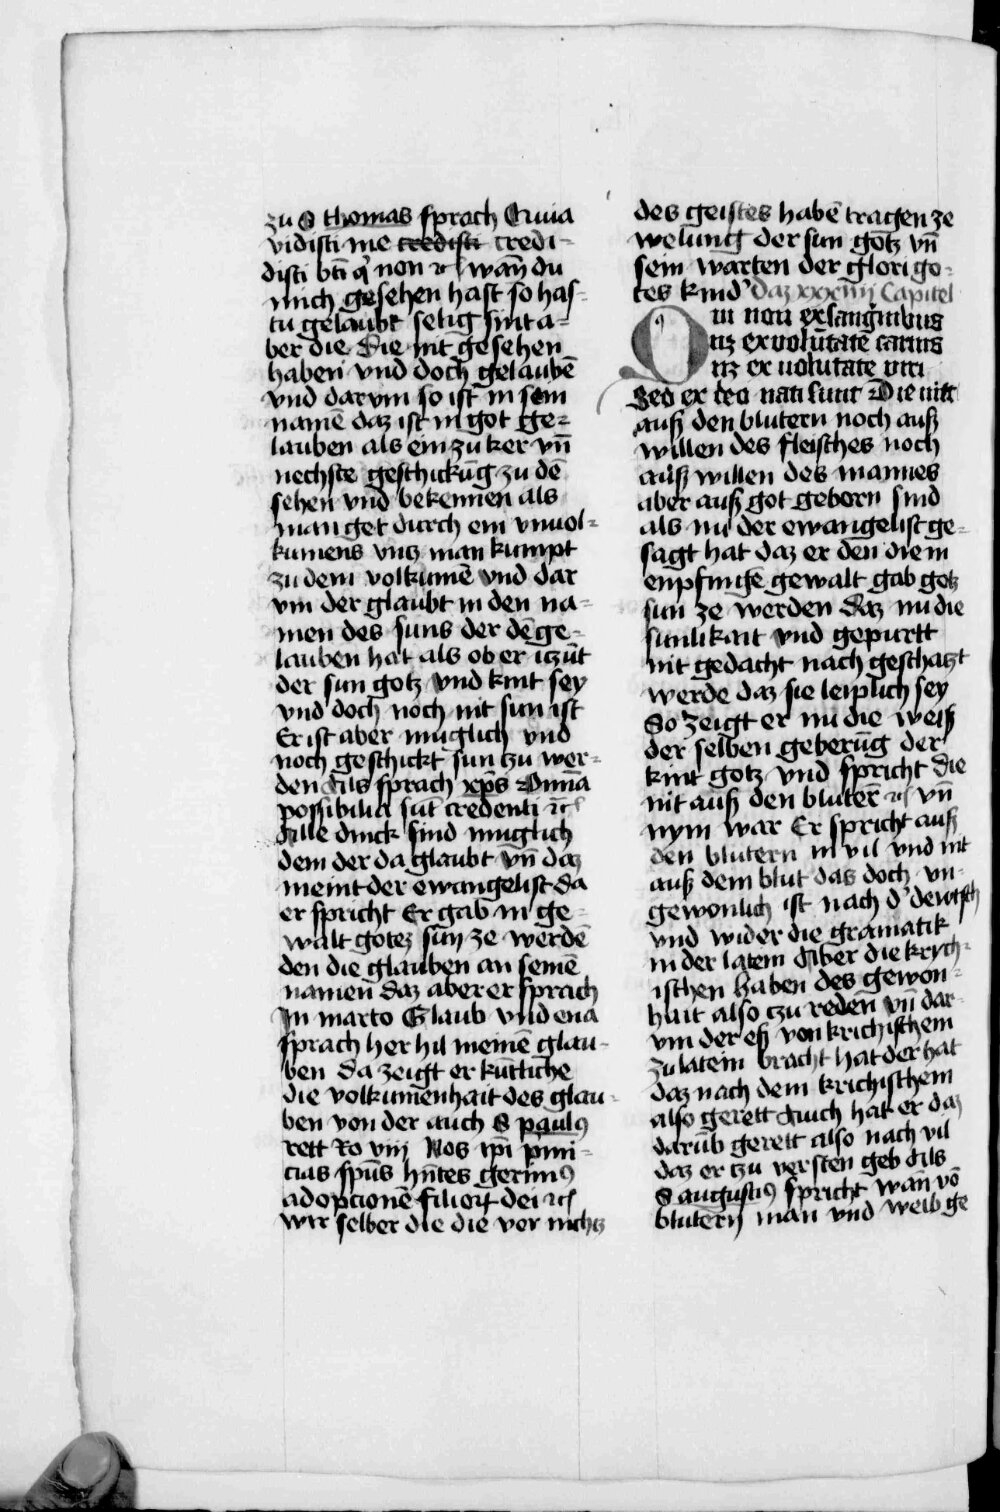 zu S thomas sprach Quia
vidisti me credisti credi-
disti bti q̇ non ⁊c̃ wan̄ du
mich gesehen hast so has-
tu gelaubt selig sint a-
ber die Die nit gesehen
haben vnd doch gelaubē
vnd darvm so ist in sein
namē daz ist in got ge-
lauben als ein zu ker vn̄
nechste geschickūg zu dē
sehen vnd bekennen als
man get durch ein vnuol-
kumens vntz man kumpt
zu dem volkumē vnd dar
vm der glaubt in den na-
men des suns der dē ge-
lauben hat als ob er iczūt
der sun gotz vnd kint sey
vnd doch noch nit sun ist
Er ist aber muglich vnd
noch geschickt sun zu wer-
den Als sprach xp̄s Omnia
possibilia sūt credenti ⁊c̃
Alle dinck sind muglich
dem der da glaubt vn̄ daz
meint der ewangelist da
er spricht Er gab in ge-
walt gotez sun ze werdē
den die glauben an seinē
namen daz aber er sprach
In marco Glaub vnd ena
sprach her hil meinē glau-
ben da zeigt er kūtliche
die volkumenhait des glau-
ben von der auch S paulꝰ
rett Ro viij Nos ip̄i primi-
cias sp̄us hn̄tes gerimꝰ
adoptionē filioꝝ dei ⁊c̃
wir selber die die vor nichtz
des geistes habē tragen ze
welung der sun gotz vn̄
sein warten der glori go-
tes kind' Daz xxxiiij Capitel
Qui non ex sanguinibus
nz ex uolūtate carnis
nz ex uolutate viri
Sed ex deo nati sunt Die nitt
auß den blutern noch auß
willen des fleisches noch
auß willen des mannes
aber auß got geborn sind
als nu der ewangelist ge-
sagt hat daz er den die in
enpfingē gewalt gab gotz
sun ze werden Daz nu die
sunlikait vnd gepurtt
nit gedacht nach geschatzt
werde daz sie leiplich sey
So zeigt er nu die weiß
der selben geberūg der
kint gotz vnd spricht die
nit auß den bluterē ⁊c̃ vn̄
nym war Er spricht auß
den blutern in vil vnd nit
auß dem blut das doch vn-
gewonlich ist nach d' dewtsch
vnd wider die gramatik
in der latein Aber die krych-
ischen haben des gewon-
hait also czu reden vn̄ dar
vm der eß von krichischem
zu latein bracht hat der hat
daz nach dem krichischem
also gerett Auch hat er daz
darūb gerett also nach vil
daz er czu versten geb Als
S augustiꝰ spricht wan vō
blutern man vnd weib ge